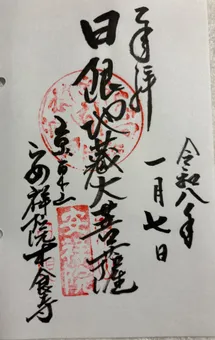 令和八年
一月七日
奉拝
日限地蔵大菩薩
京東山
安祥院木食寺